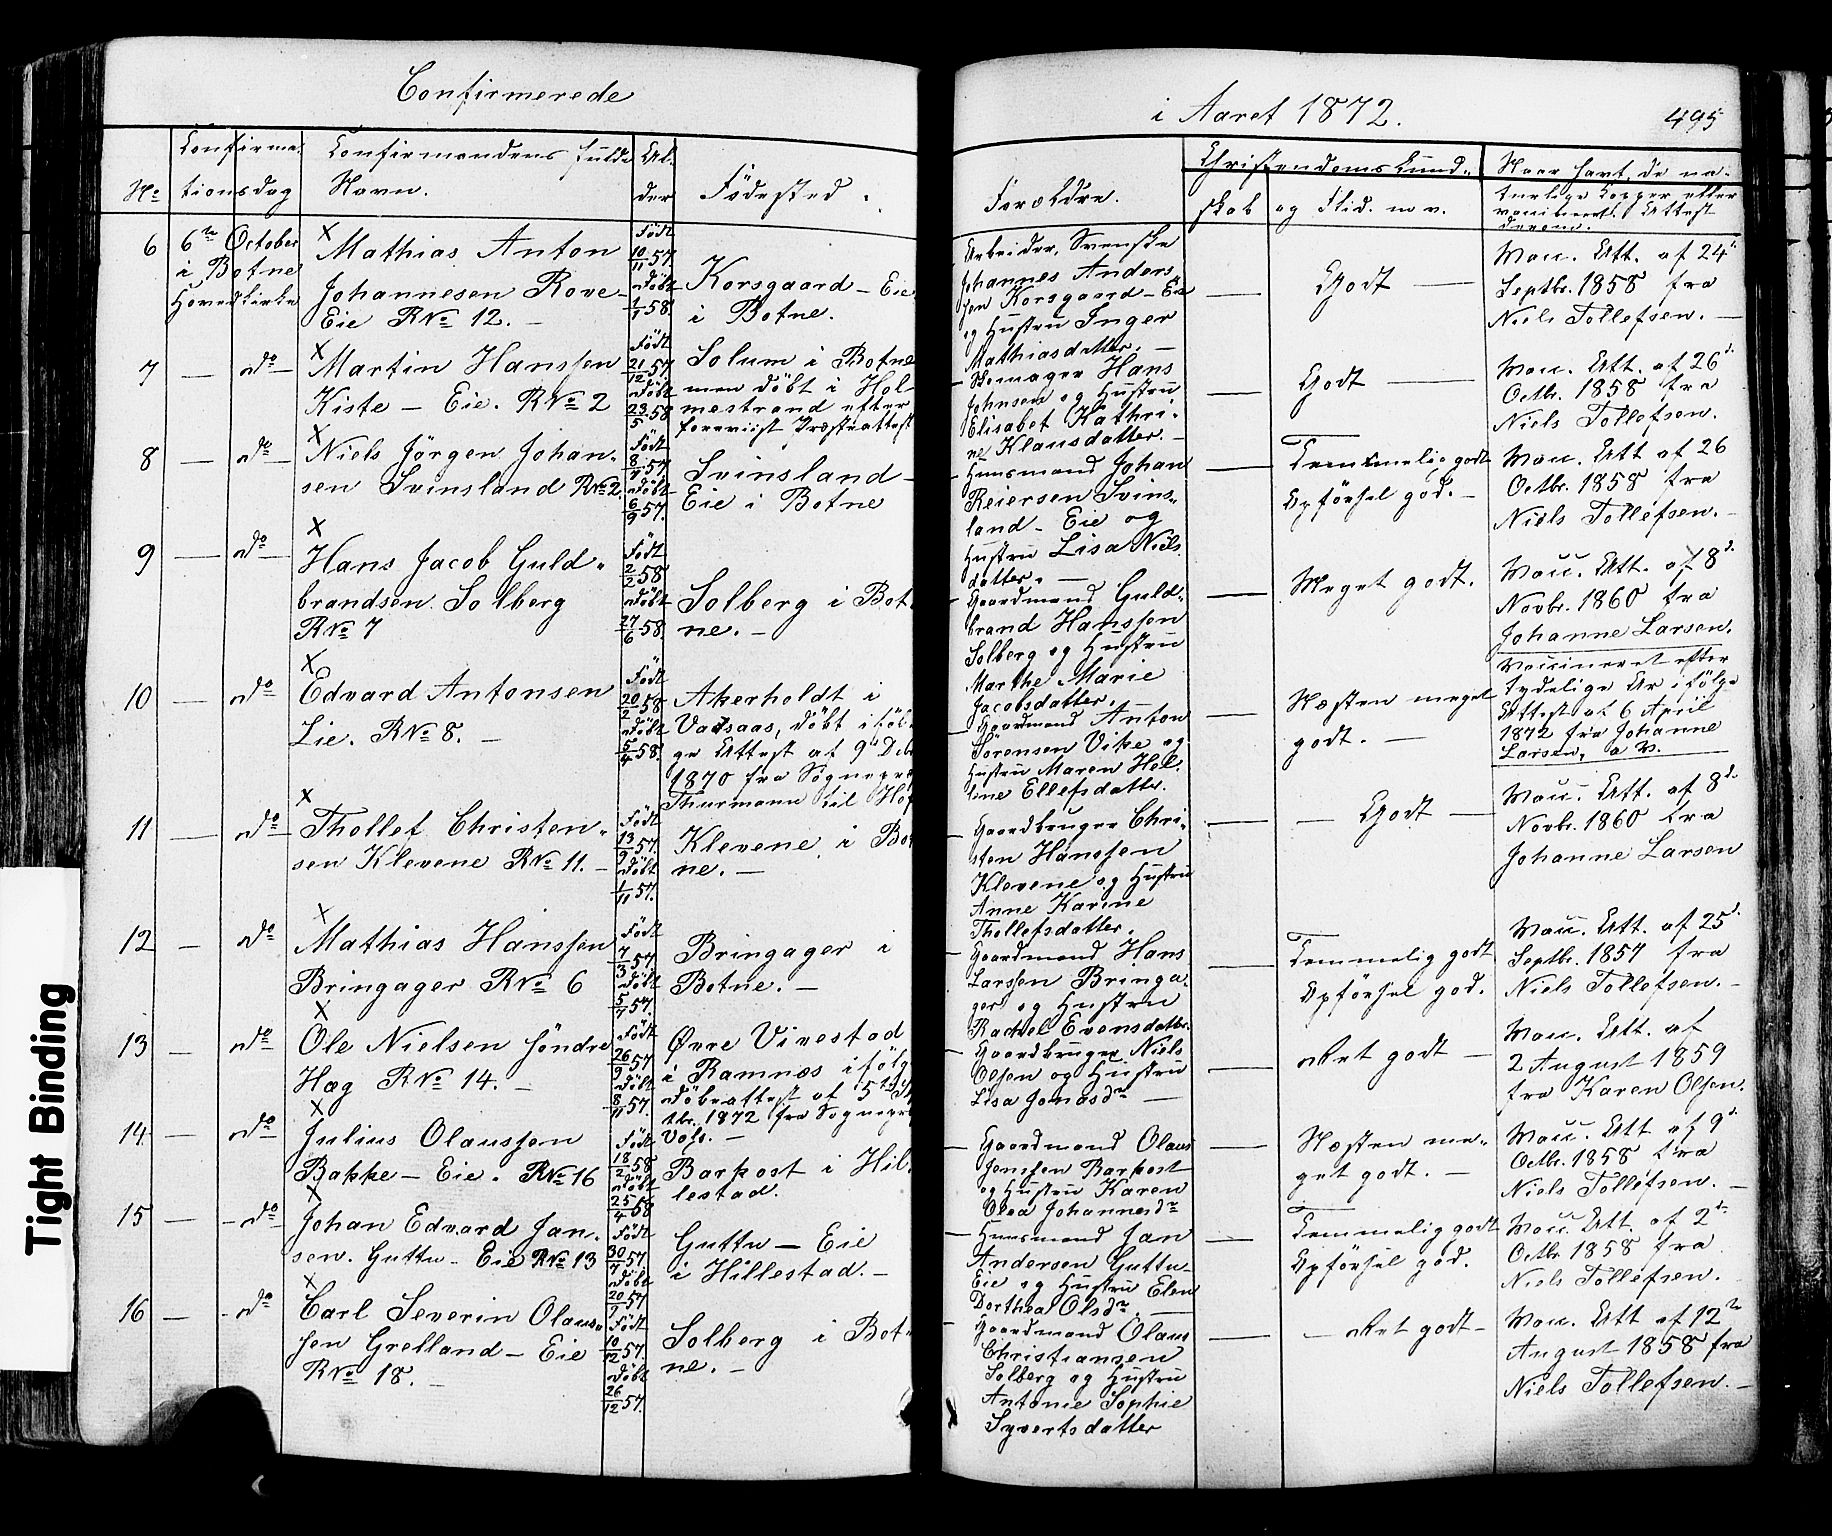 Confirmerede
i Aaret 1872.
495
No
Confirma-
tionsdag
Confirmandens fulde
Navn.
Al-
der
Fødested.
Forældre.
Christendomskund-
skab og Flid. m. v.
Naar havt de na-
turlige Kopper eller
vaccineret. Attest
derom.
6
6te October
i Botne
Hovedkirke
Mathias Anton
Johannesen Rove-
Eie RNo 12. —
Født
10/11 57.
Døbt
1/1 58.
Korsgaard - Eie
i Botne.
Arbeider, Svenske
Johannes Anders
sen Korsgaard - Eie
og Hustru Inger
Mathiasdatter. —
Godt
Vacc. Att. af 24
Septbr. 1858 fra
Niels Tollefsen. —
7 — do —
Martin Hanssen
Kiste - Eie. RNo 2
Født
21/12 57.
Døbt
23/5 58
Solum i Botne
men døbt i Hol
mestrand efter
foreviist Præsteattest
Skomager Hans
Johnsen og Hustru
Elisabet Kathri-
ne Klausdatter. —
Godt
Vacc. Att. af 26
Octbr. 1858 fra
Niels Tollefsen.
8 — do —
Niels Jörgen Johan-
sen Svinsland RNo 2.
Født
8/7 57
Døbt
6/9 57.
Svinsland -
Eie i Botne
Huusmand Johan
Reiersen Svins-
land - Eie og
Hustru Lisa Niels
datter. —
Temmelig godt
Opförsel god. —
Vacc. Att af 26
Octbr. 1858 fra
Niels Tollefsen. —
9 — do —
Hans Jacob Guld-
brandsen Solberg
RNo 7
Født
2/2 58
Døbt
27/6 58.
Solberg i Bot
ne. —
Gaardmand Guld-
brand Hanssen
Solberg og Hustru
Marthe Marie
Jacobsdatter.
Meget godt.
Vacc. Att. af 8
Novbr. 1860 fra
Johanne Larsen.
10 — do —
Edvard Antonsen
Lie. RNo 8. —
Født
20/2 58
Døbt
5/4 58.
Akerholdt i
Vadsaas, døbt iføl
ge Attest af 9 Decbr
1870 fra Sognepræ
Thurmann til Hof
Gaardmand Anton
Sørensen Vike og
Hustru Maren Hel
line Ellefsdatter.
Næsten meget
godt. —
Vaccineret efter
tydelige Ar ifølge
Attest af 6 April
1872 fra Johanne
Larsen. a. v.
11 — do —
Thollef Christen-
sen Klevene RNo 11. —
Født
13/9 57.
Døbt
1/11 57.
Klevene i Bot
ne. —
Gaardbruger Chri-
sten Hanssen
Klevene og Hustru
Anne Karine
Thollefsdatter.
— Godt —
Vacc. Att. af 8
Novbr. 1860 fra
Johanne Larsen
12 — do
Mathias Hanssen
Bringager RNo 6
Født
7/3 57
Døbt
5/7 57.
Bringager i
Botne. —
Gaardmand Hans
Larssen Bringa-
ger og Hustru
Rachel Evensdatter.
Temmelig godt
Opførsel god.
Vacc. Att. af 25
Septbr. 1857 fra
Niels Tollefsen. —
13 — do
Ole Nielsen Søndre
Hæg RNo 14. —
Født
26/9 57
Døbt
8/11 57.
Øvre Vivestad
i Ramnæs ifølg
døbeattest af 5 
tbr. 1872 fra Sognepræ
Vofs. —
Gaardbruger Niels
Olsen og Hustru
Lisa Jonasdr —
Ret godt —
Vacc. Att. af
2 August 1859
fra Karen Olsen.
14 — do
Julius Olaussen
Bakke - Eie. RNo 16
Født
18/2 58
Døbt
25/4 58
Barkost i Hil-
lestad.
Gaardmand Olaus
Jenssen Barkost
og Hustru Karen
Olea Johannesdr
Næsten me-
get godt. —
Vacc. Att af 9
Octbr. 1858 fra
Niels Tollefsen. —
15 — do
Johan Edvard Jan-
sen. Guttu - Eie RNo 13
Født
30/7 57.
Døbt
20/9 57
Guttu - Eie
i Hillestad. —
Huusmand Jan
Andersen Guttu-
Eie og Hustru Elen
Dorthea Olsdr. —
Temmelig godt
Opførsel god.
Vacc. Att. af 2
Octbr 1858 fra
Niels Tollefsen. —
16 — do
Carl Severin Olaus-
sen Grelland - Eie
RNo 18. —
Født
10/12 57.
Døbt
26/12 57.
Solberg i Bot-
ne. —
Gaardmand Olaus
Christiansen
Solberg og Hustru
Antonie Sophie
Syvertsdatter
— Ret godt —
Vacc. Att af 12te
August 1858 fra
Niels Tollefsen. —
Tight Binding